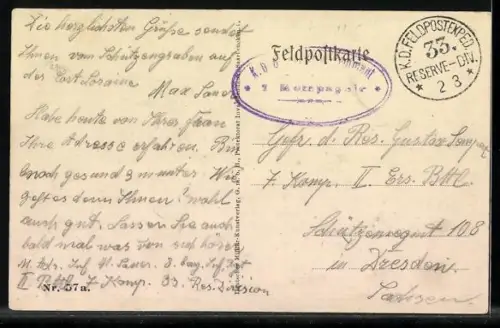 Die herzlichsten Grüße sendet
Ihnen vom Schützengraben auf
der Cote Loraine
Max Sauer
Habe heute von Ihrer Frau
Ihre Adresse erfahren. Bin
noch gesund & munter. Wie
geht es denn Ihnen? wohl
auch gut. Lassen Sie auch
bald mal was von sich hören
M. Adr. Inf. M. Sauer. 8. bayr. Inf. Regt
II Battl. 7 Komp. 33. Res. Division
Nr. 57a.
Feldpostkarte
7 Kompagnie
K.D. FELDPOSTEXPED.
33.
RESERVE-DIV.
* 2 3 *
Gefr. d. Res. Gustav
7. Komp. II. Ers. Battl.
Schützenregimt 108
in Dresden
Sachsen